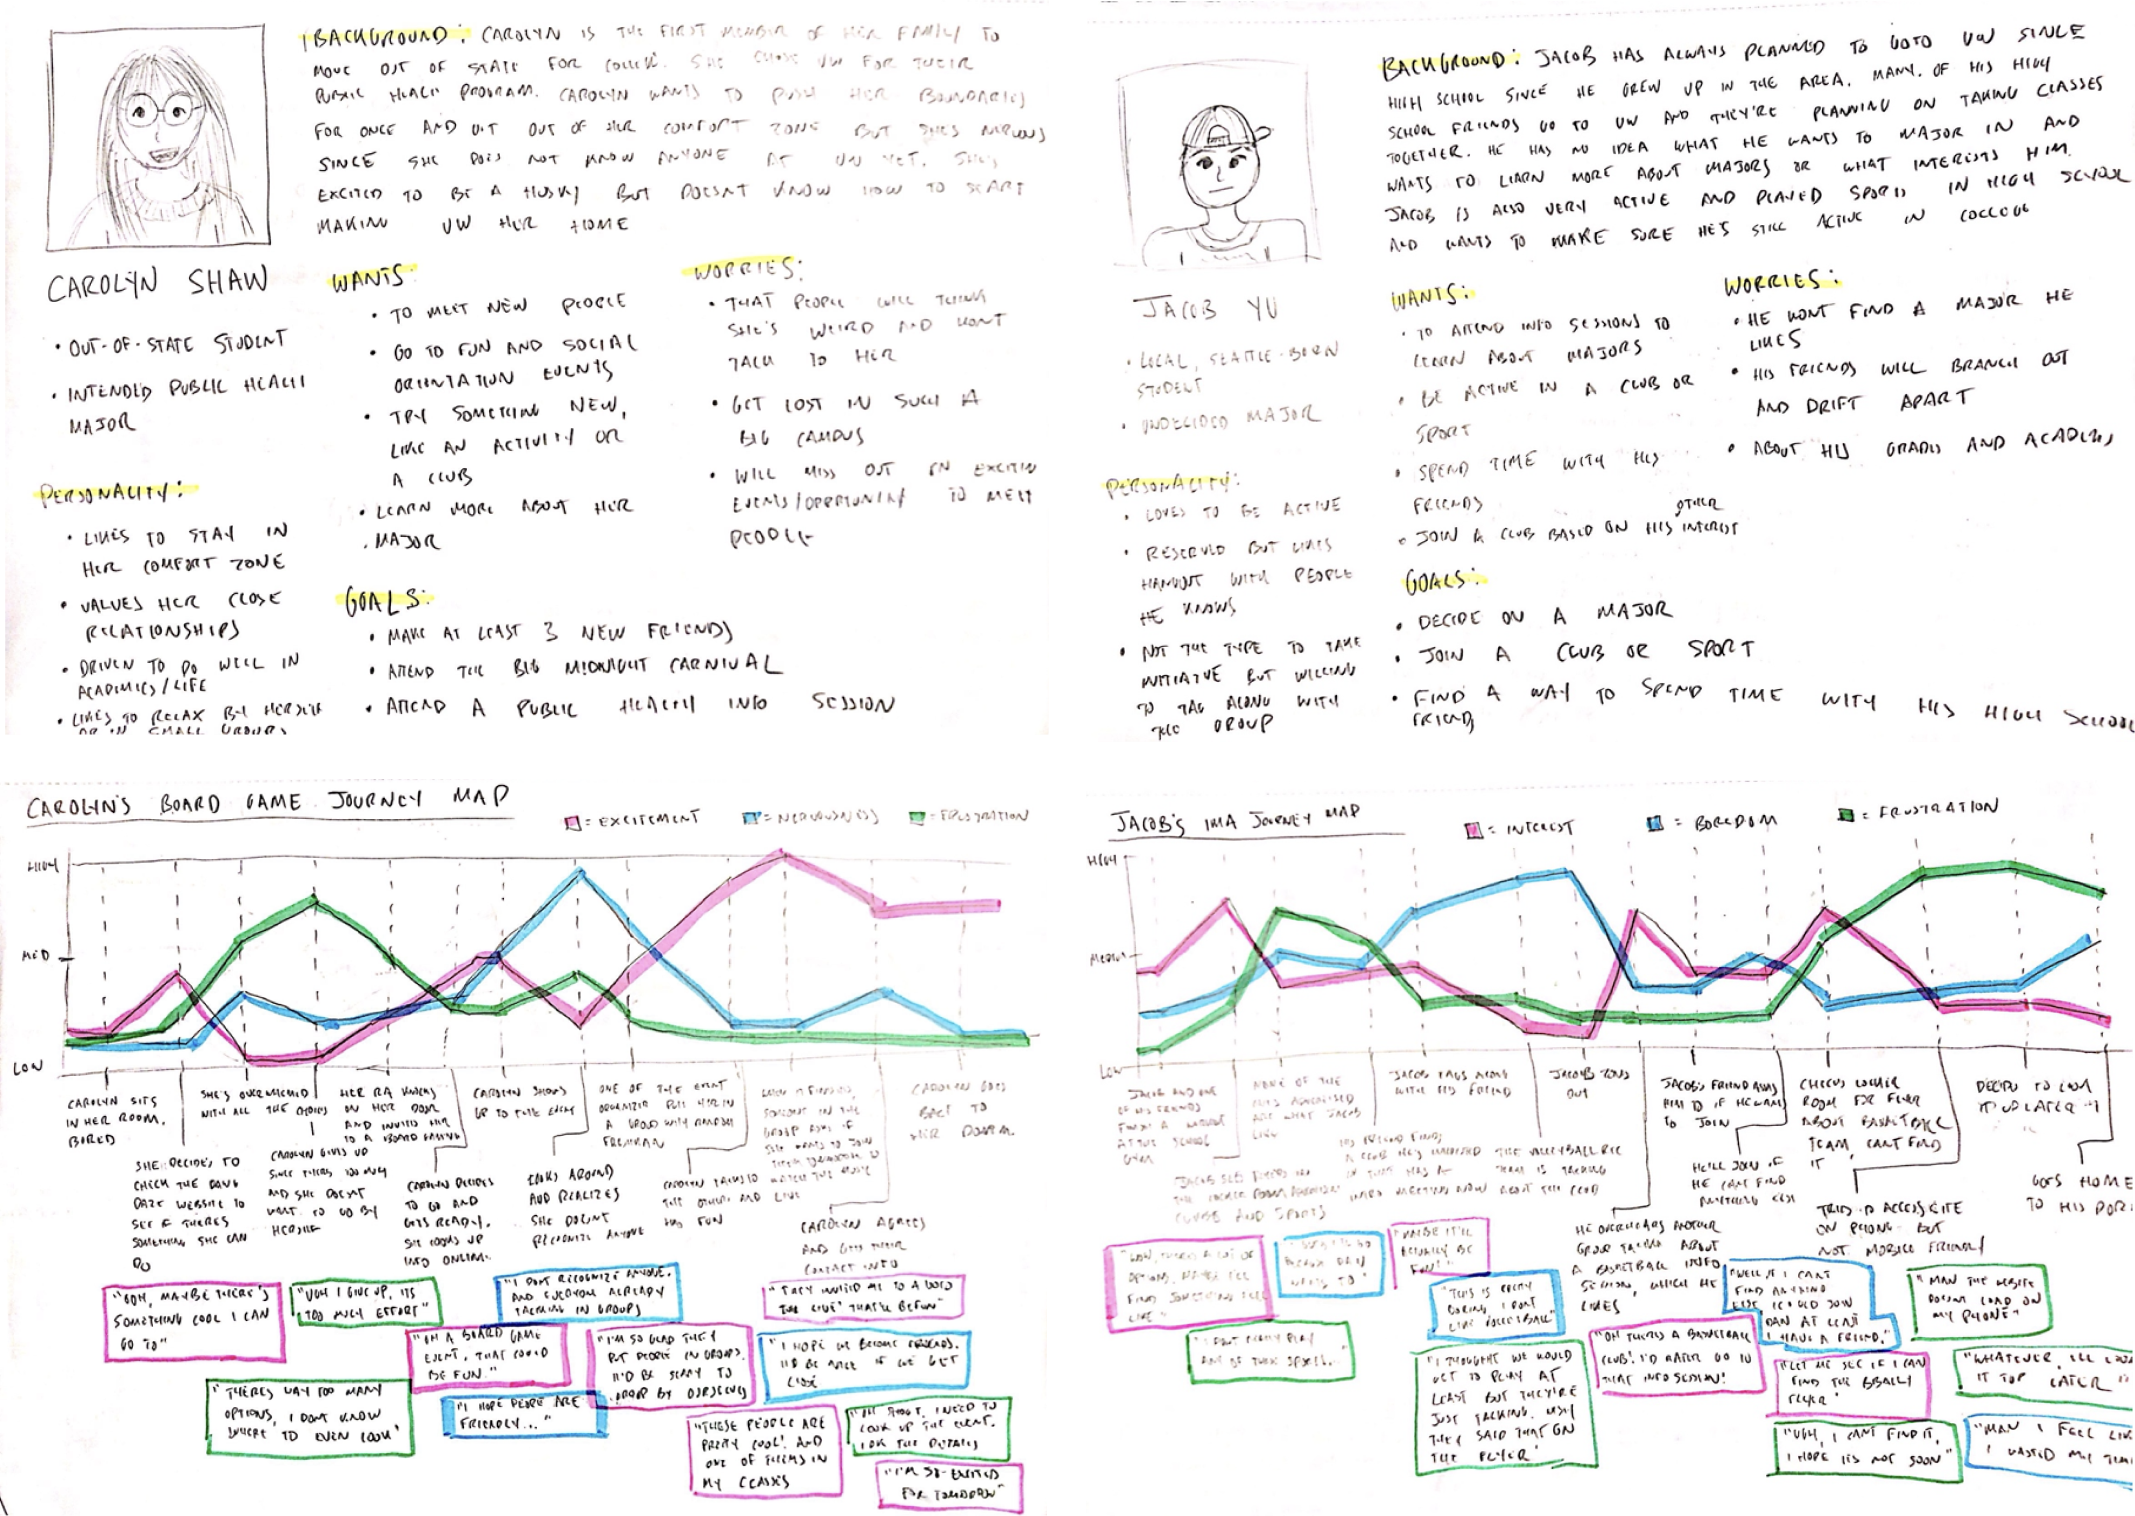 BACKGROUND: CAROLYN IS THE FIRST MEMBER OF HER FAMILY TO
MOVE OUT OF STATE FOR COLLEGE. SHE CHOSE UW FOR THEIR
PUBLIC HEALTH PROGRAM. CAROLYN WANTS TO PUSH HER BOUNDARIES
FOR ONCE AND GET OUT OF HER COMFORT ZONE BUT SHE'S NERVOUS
SINCE SHE DOES NOT KNOW ANYONE AT UW YET. SHE'S
EXCITED TO BE A HUSKY BUT DOESNT KNOW HOW TO START
MAKING UW HER HOME
CAROLYN SHAW
• OUT-OF-STATE STUDENT
• INTENDED PUBLIC HEALTH
MAJOR
PERSONALITY:
• LIKES TO STAY IN
HER COMFORT ZONE
• VALUES HER CLOSE
RELATIONSHIPS
• DRIVEN TO DO WELL IN
ACADEMICS/LIFE
• LIKES TO RELAX BY HERSELF
OR IN SMALL GROUPS
WANTS:
• TO MEET NEW PEOPLE
• GO TO FUN AND SOCIAL
ORIENTATION EVENTS
• TRY SOMETHING NEW,
LIKE AN ACTIVITY OR
A CLUB
• LEARN MORE ABOUT HER
MAJOR
WORRIES:
• THAT PEOPLE WILL THINK
SHE'S WEIRD AND WONT
TALK TO HER
• GET LOST IN SUCH A
BIG CAMPUS
• WILL MISS OUT ON EXCITIN
EVENTS/OPPORTUNITY TO MEET
PEOPLE
GOALS:
• MAKE AT LEAST 3 NEW FRIENDS
• ATTEND THE BIG MIDNIGHT CARNIVAL
• ATTEND A PUBLIC HEALTH INFO SESSION
BACKGROUND: JACOB HAS ALWAYS PLANNED TO GOTO UW SINCE
HIGH SCHOOL SINCE HE GREW UP IN THE AREA. MANY OF HIS HIGH
SCHOOL FRIENDS GO TO UW AND THEY'RE PLANNING ON TAKING CLASSES
TOGETHER. HE HAS NO IDEA WHAT HE WANTS TO MAJOR IN AND
WANTS TO LEARN MORE ABOUT MAJORS OR WHAT INTERESTS HIM.
JACOB IS ALSO VERY ACTIVE AND PLAYED SPORTS IN HIGH SCHOOL
AND WANTS TO MAKE SURE HE'S STILL ACTIVE IN COLLEGE
JACOB YU
• LOCAL, SEATTLE-BORN
STUDENT
• UNDECIDED MAJOR
PERSONALITY:
• LOVES TO BE ACTIVE
• RESERVED BUT LIKES
HANGOUT WITH PEOPLE
HE KNOWS
• NOT THE TYPE TO TAKE
INITIATIVE BUT WILLING
TO TAG ALONG WITH
THE GROUP
WANTS:
• TO ATTEND INFO SESSIONS TO
LEARN ABOUT MAJORS
• BE ACTIVE IN A CLUB OR
SPORT
• SPEND TIME WITH HIS
FRIENDS
• JOIN A CLUB BASED ON HIS OTHER INTEREST
WORRIES:
• HE WONT FIND A MAJOR HE
LIKES
• HIS FRIENDS WILL BRANCH OUT
AND DRIFT APART
• ABOUT HIS GRADES AND ACADEMICS
GOALS:
• DECIDE ON A MAJOR
• JOIN A CLUB OR SPORT
• FIND A WAY TO SPEND TIME WITH HIS HIGH SCHOOL
FRIENDS
CAROLYN'S BOARD GAME JOURNEY MAP
= EXCITEMENT
= NERVOUSNESS
= FRUSTRATION
HIGH
MED
LOW
CAROLYN SITS
IN HER ROOM,
BORED
SHE DECIDES TO
CHECK THE DAWG
DAZE WEBSITE TO
SEE IF THERE'S
SOMETHING SHE CAN
DO
SHE'S OVERWHELMED
WITH ALL THE OPTIONS
CAROLYN GIVES UP
SINCE THERES TOO MANY
AND SHE DOESNT
WANT TO GO BY
HERSELF
HER RA KNOCKS
ON HER DOOR
AND INVITES HER
TO A BOARD GAMING
CAROLYN DECIDES
TO GO AND
GETS READY.
SHE LOOKS UP
INFO ONLINE
CAROLYN SHOWS
UP TO THE EVENT
LOOKS AROUND
AND REALIZES
SHE DOESNT
RECOGNIZE ANYONE
ONE OF THE EVENT
ORGANIZER PUTS HER IN
A GROUP WITH RANDOM
FRESHMAN
CAROLYN TALKS TO
THE OTHERS AND
HAS FUN
CAROLYN AGREES
AND GETS THEIR
CONTACT INFO
CAROLYN GOES
BACK TO
HER DORM
"OOH, MAYBE THERE'S
SOMETHING COOL I CAN
GO TO"
"UGH I GIVE UP, ITS
TOO MUCH EFFORT"
"THERES WAY TOO MANY
OPTIONS, I DONT KNOW
WHERE TO EVEN LOOK"
"OH A BOARD GAME
EVENT, THAT COULD
BE FUN."
"I HOPE PEOPLE ARE
FRIENDLY..."
"I DONT RECOGNIZE ANYONE.
AND EVERYONE ALREADY
TALKING IN GROUPS"
"I'M SO GLAD THEY
PUT PEOPLE IN GROUPS.
IT'D BE SCARY TO
GROUP BY OURSELVES
"THESE PEOPLE ARE
PRETTY COOL! AND
ONE OF THEM'S IN
MY CLASSES
"THEY INVITED ME TO A
THAT'LL BE FUN"
"I HOPE WE BECOME FRIENDS.
IT'D BE NICE IF WE GET
CLOSE
I NEED TO
LOOK UP THE EVENT.
"I'M SO EXCITED
FOR TOMORROW"
JACOB'S IMA JOURNEY MAP
= INTEREST
= BOREDOM
= FRUSTRATION
HIGH
MEDIUM
LOW
JACOB AND ONE
OF HIS FRIENDS
AT THE SCHOOL
GYM
CLUBS AND SPORTS
NONE OF THE
ONES ADVERTISED
ARE WHAT JACOB
JACOB TAGS ALONG
WITH HIS FRIEND
THE VALLEYBALL REC
TEAM IS TALKING
ABOUT THE CLUB
JACOB ZONES
OUT
HE OVERHEARS ANOTHER
GROUP TALKING ABOUT
A BASKETBALL INFO
SESSION, WHICH HE
LIKES
JACOB'S FRIEND ASKS
HIM IF HE WANTS
TO JOIN
HE'LL JOIN IF
HE CANT FIND
ANYTHING ELSE
CHECKS LOCKER
ROOM FOR FLYER
ABOUT BASKETBALL
TEAM, CANT FIND
IT
TRIES TO ACCESS SITE
ON PHONE BUT
NOT MOBILE FRIENDLY
DECIDES TO LOOK
IT UP LATER
GOES HOME
TO HIS DORM
"WOW, THERES A LOT OF
OPTIONS, MAYBE I'LL
FIND SOMETHING I'LL
LIKE"
"I DONT REALLY PLAY
ANY OF THESE SPORTS..."
"MAYBE IT'LL
ACTUALLY BE
FUN!"
"THIS IS PRETTY
BORING, I DONT
LIKE VOLLEYBALL"
"I THOUGHT WE WOULD
GET TO PLAY AT
LEAST BUT THEY'RE
JUST TALKING. WISH
THEY SAID THAT ON
THE FLYER"
"OH THERES A BASKETBALL
CLUB! I'D RATHER GO TO
THAT INFO SESSION!"
"WELL, IF I CANT
FIND ANYTHING
ELSE, I COULD JOIN
DAN AT LEAST
I HAVE A FRIEND."
"LET ME SEE IF I CAN
FIND THE BBALL
FLYER"
"UGH, I CANT FIND IT,
I HOPE ITS NOT SOON"
"MAN THE WEBSITE
DOESNT LOAD ON
MY PHONE"
"WHATEVER, ILL LOOK
IT UP LATER"
"MAN I FEEL LIKE
I WASTED MY TIME